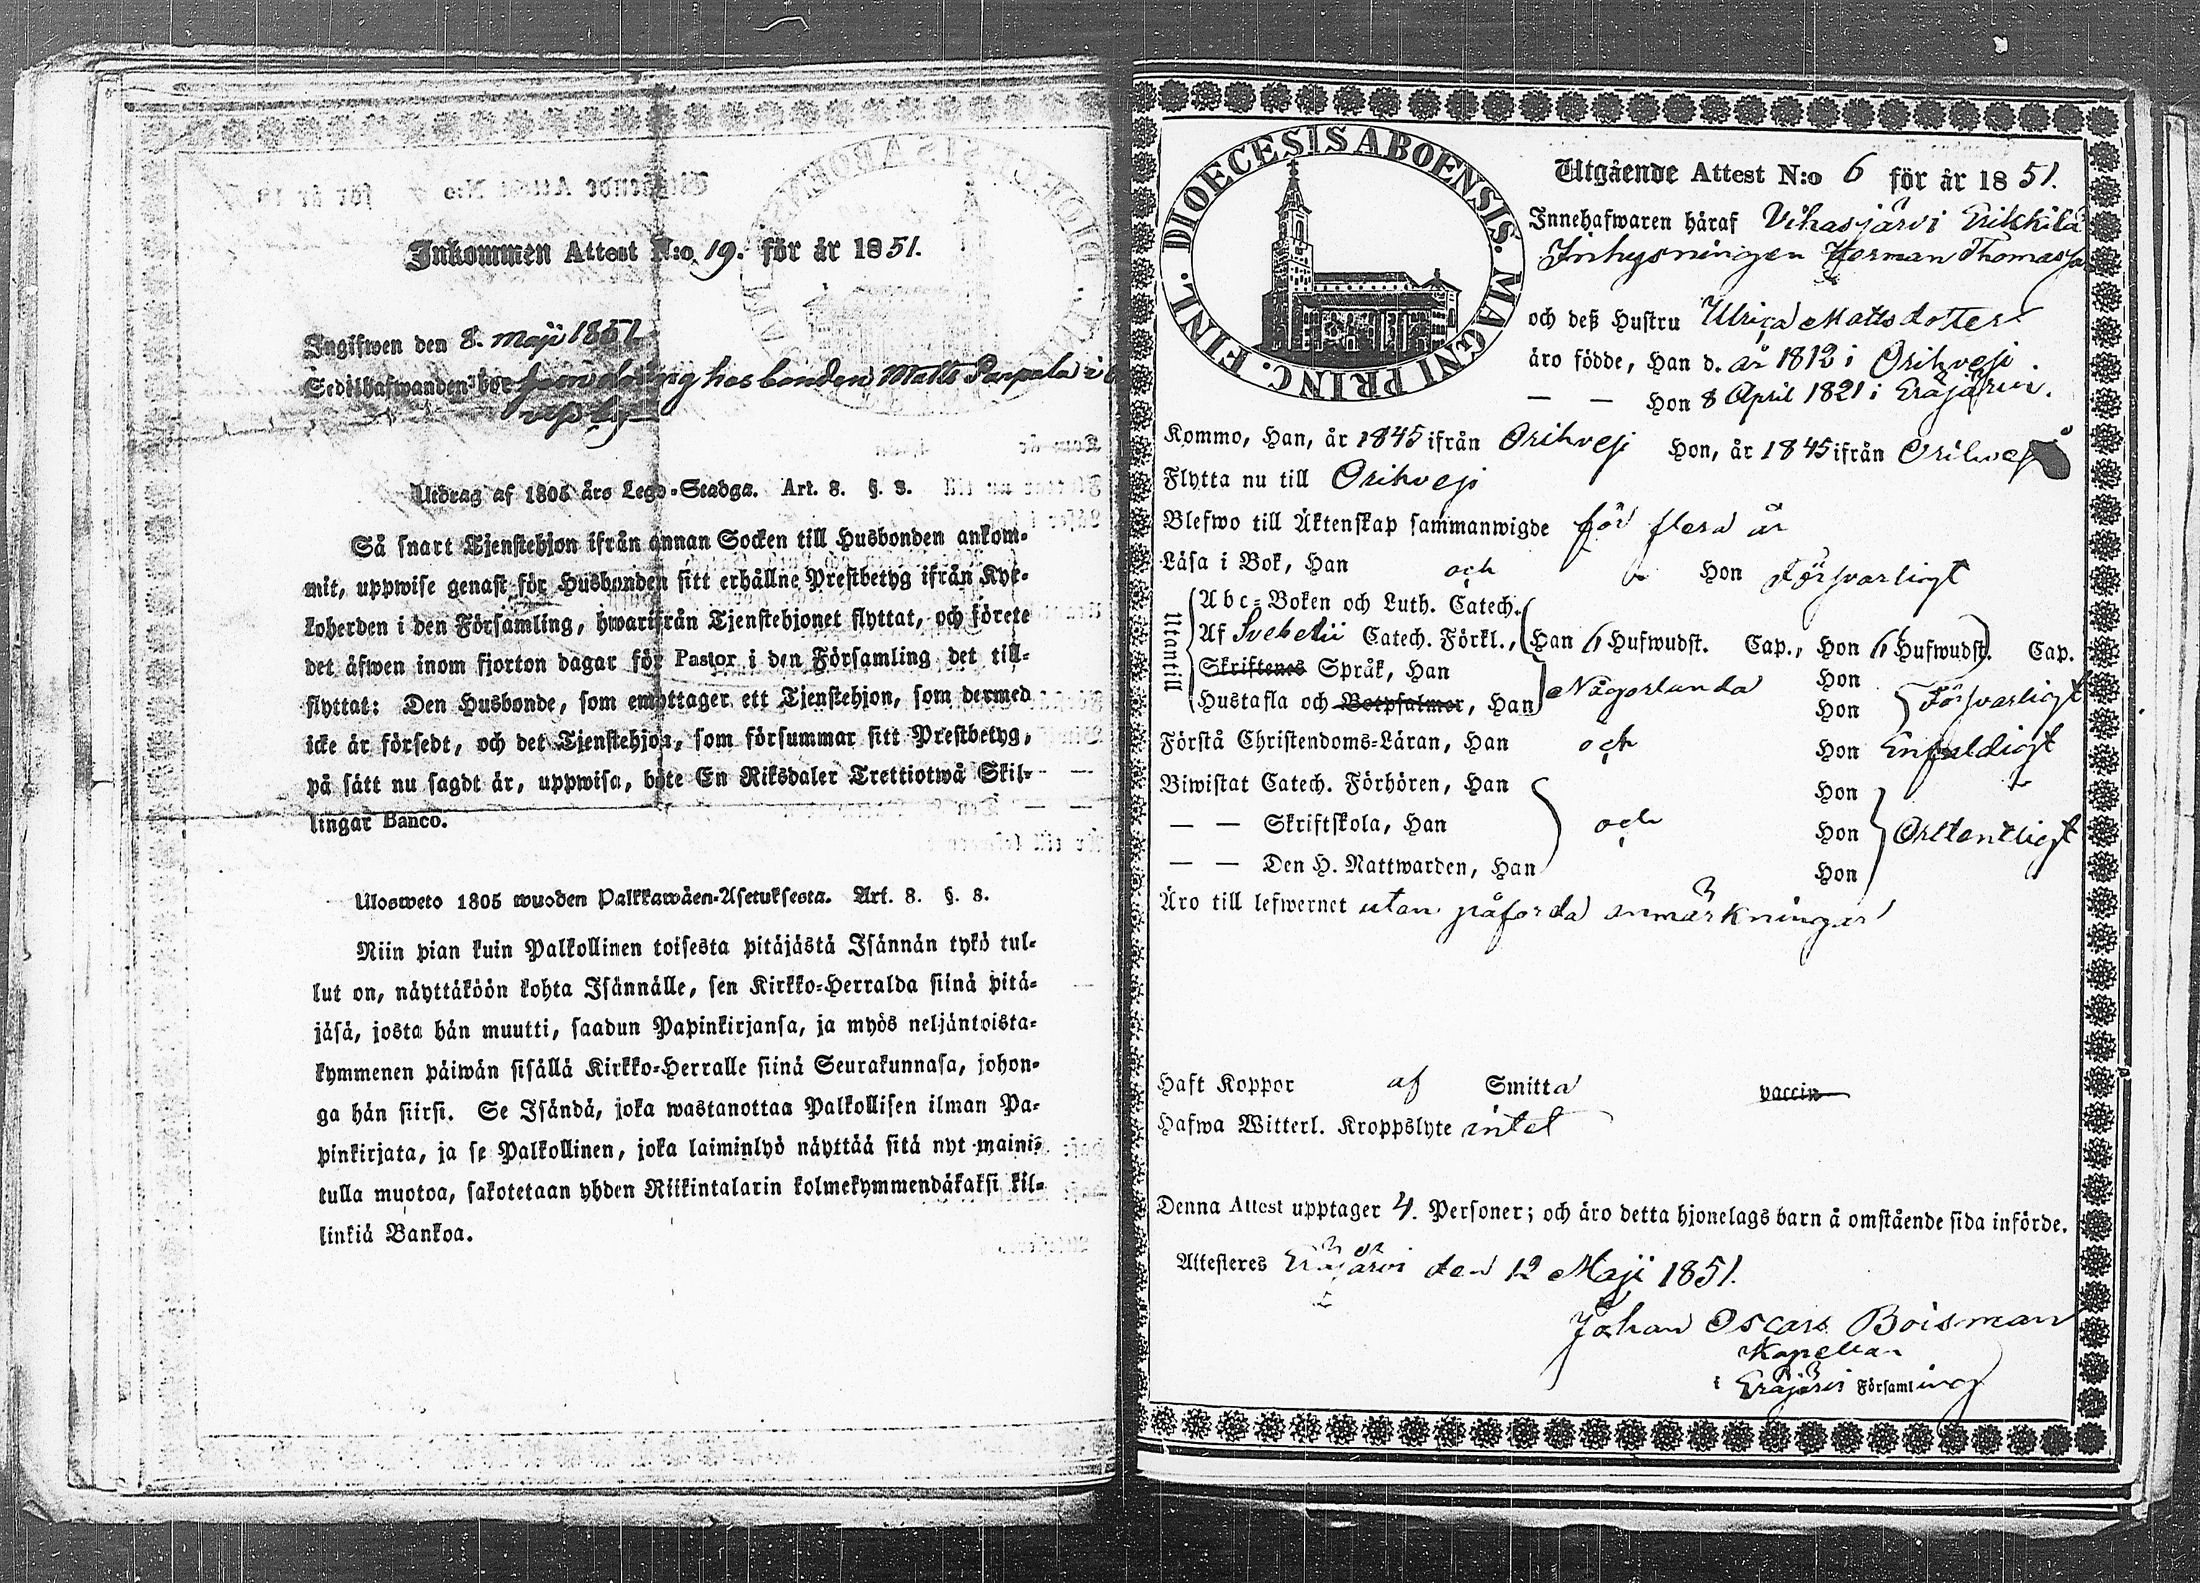 Inkommen Attest N:o 19. för år 1851.
Ingifwen den 8. Maji 1851.
Sedilhafwanden bor som dräng hos bonden Matts Parpala i
Utdrag af 1805 års Lego-Stadga. Art. 8. §. 8.
Så snart Tjenstehjon ifrån annan Socken till Husbonden ankom-
mit, uppwise genast för Husbonden sitt erhållne Prestbetyg ifrån Kyr-
koherden i den Församling, hwarifrån Tjenstehjonet flyttat, och förete
det äfwen inom fjorton dagar för Pastor i den Församling det till-
flyttat: Den Husbonde, som emottager ett Tjenstehjon, som dermed
icke är försedt, och det Tjenstehjon, som försummar sitt Prestbetyg,
på sätt nu sagdt är, uppwisa, böte En Riksdaler Trettiotwå Skil-
lingar Banco.
Ulosweto 1805 wuoden Palkkawäen-Asetuksesta. Art. 8. §. 8.
Niin pian kuin Palkollinen toisesta pitäjästä Isännän tykö tul-
lut on, näyttäköön kohta Isännälle, sen Kirkko-Herralda siinä pitä-
jäsä, josta hän muutti, saadun Papinkirjansa, ja myös neljäntoista-
kymmenen päiwän sisällä Kirkko-Herralle siinä Seurakunnasa, johon-
ga hän siirsi. Se Isändä, joka wastanottaa Palkollisen ilman Pa-
pinkirjata, ja se Palkollinen, joka laiminlyö näyttää sitä nyt maini-
tulla muotoa, sakotetaan yhden Riikintalarin kolmekymmendäkaksi kil-
linkiä Bankoa.
DIOECESIS ABOENSIS. MAGNI PRINC. FINL.
Utgående Attest N:o 6 för år 1851.
Innehafwaren häraf Vihasjärvi Erikkilä
Inhysningen Herman Thomass
och deß Hustru Ulrica Mattsdotter
äro födde, Han d. år 1812 i Orihvesi
— — Hon 8 April 1821 i Eräjärvi.
Kommo, Han, år 1845 ifrån Orihvesi Hon, år 1845 ifrån Orihvesi
Flytta nu till Orihvesi
Blefwo till Äktenskap sammanwigde för flera år
Läsa i Bok, Han och Hon Försvarligt
Utantill
Abc-Boken och Luth. Catech.
Af Svebelii Catech. Förkl., Han 6 Hufwudst. Cap., Hon 6 Hufwudst. Cap.
Skriftenes Språk, Han Någorlunda Hon Försvarligt
Hustafla och Botpsalmer, Han Hon
Förstå Christendoms-Läran, Han och Hon Enfaldigt
Biwistat Catech. Förhören, Han Hon
— — Skriftskola, Han och Hon Ordentligt
— — Den H. Nattwarden, Han Hon
Äro till lefwernet utan påförda anmärkningar
Haft Koppor af Smitta vaccin
Hafwa Witterl. Kroppslyte intet
Denna Attest upptager 4. Personer; och äro detta hjonelags barn å omstående sida införde.
Attesteres Eräjärvi den 12 Maji 1851.
Johan Oscar Boisman
Kapellan
i Eräjärvi Församling